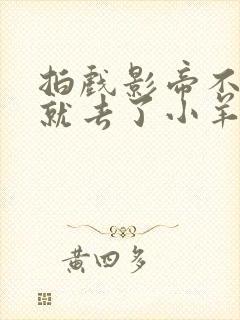 拍戏影帝不
就去了小羊
黄四多